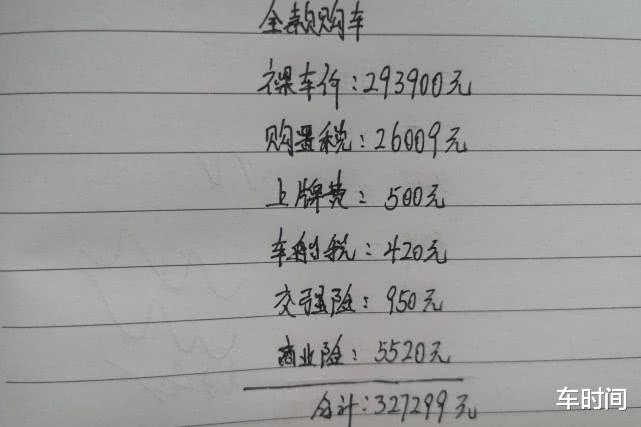 全款购车
裸车价:293900元
购置税:26009元
上牌费:500元
车船税:420元
交强险:950元
商业险:5520元
合计:327299元
车时间